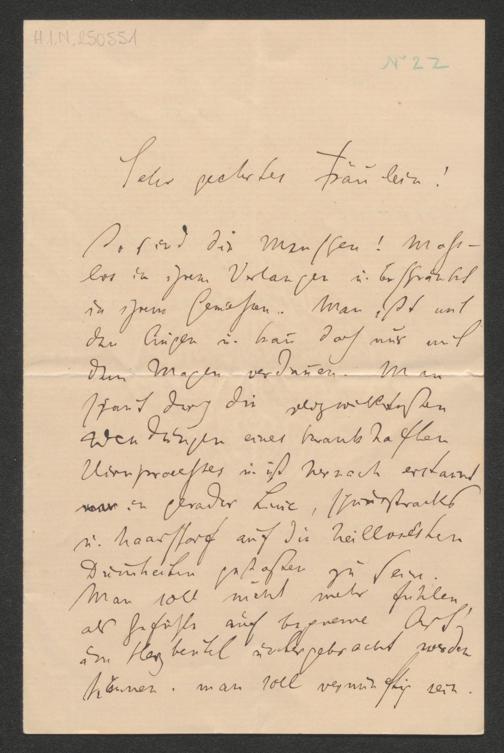 H.I.N. 250551
No 22
Sehr geehrtes Fräulein!
So sind die Menschen! Mass-
los in ihrem Verlangen u. beschränkt
in ihrem Geniessen. Man isst mit
den Augen u. kann doch nur mit
dem Magen verdauen. Man
schaut durch die
Windungen eines krankhaften
Hirnprozesses u. ist hernach erstaunt
in gerader Linie, schnurstracks
u. haarscharf auf die heillosesten
Dummheiten gestoßen zu sein.
Man soll nicht mehr fühlen
als Gefühle auf bequeme Art
im Herzbeutel untergebracht werden
können. man soll vernünftig sein.